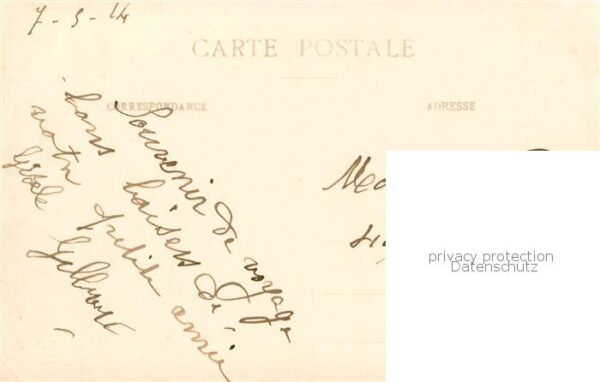 7-5-14
CARTE POSTALE
CORRESPONDANCE
ADRESSE
Souvenir de voyage
bons baisers de
votre petite amie
Gisèle
Ma
privacy protection
Datenschutz